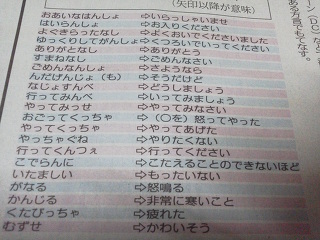 (矢印以降が意味)
おあいなはんしょ ⇨いらっしゃいませ
はいらんしょ ⇨お入りください
よぐきらったなし ⇨よくおいでくださいました
ゆっくりしてがんしょ ⇨くつろいでいってください
ありがとなし ⇨ありがとう
すまねなし ⇨ごめんなさい
ごめんなんしょ ⇨さようなら
んだげんじょ(も) ⇨そうだけど
なじょすんべ ⇨どうしましょう
行ってみんべ ⇨いってみましょう
やってみっせ ⇨やってみなさい
おごってくっちゃ ⇨(〇を)怒ってやった
やってくっちゃ ⇨やってあげた
やっちゃぐね ⇨やりたくない
行ってくんつぇ ⇨行ってください
こでらんに ⇨こたえることのできないほど
いたましい ⇨もったいない
がなる ⇨怒鳴る
かんじる ⇨非常に寒いこと
くたびっちゃ ⇨疲れた
むずせ ⇨かわいそう